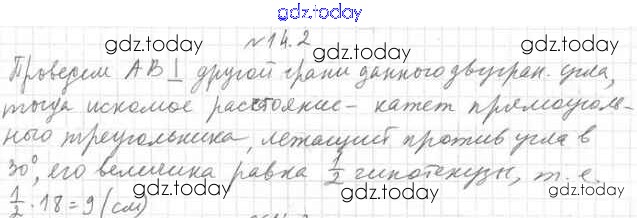 gdz.today
№14.2
gdz.today gdz.today
Проведем AB⊥ другой грани данного двугран. угла,
тогда искомое расстояние – катет прямоуголь-
gdz.today gdz.today
ного треугольника, лежащий против угла в
30°, его величина равна 1/2 гипотенузы, т.е.
gdz.today gdz.today
1/2 · 18 = 9 (см)